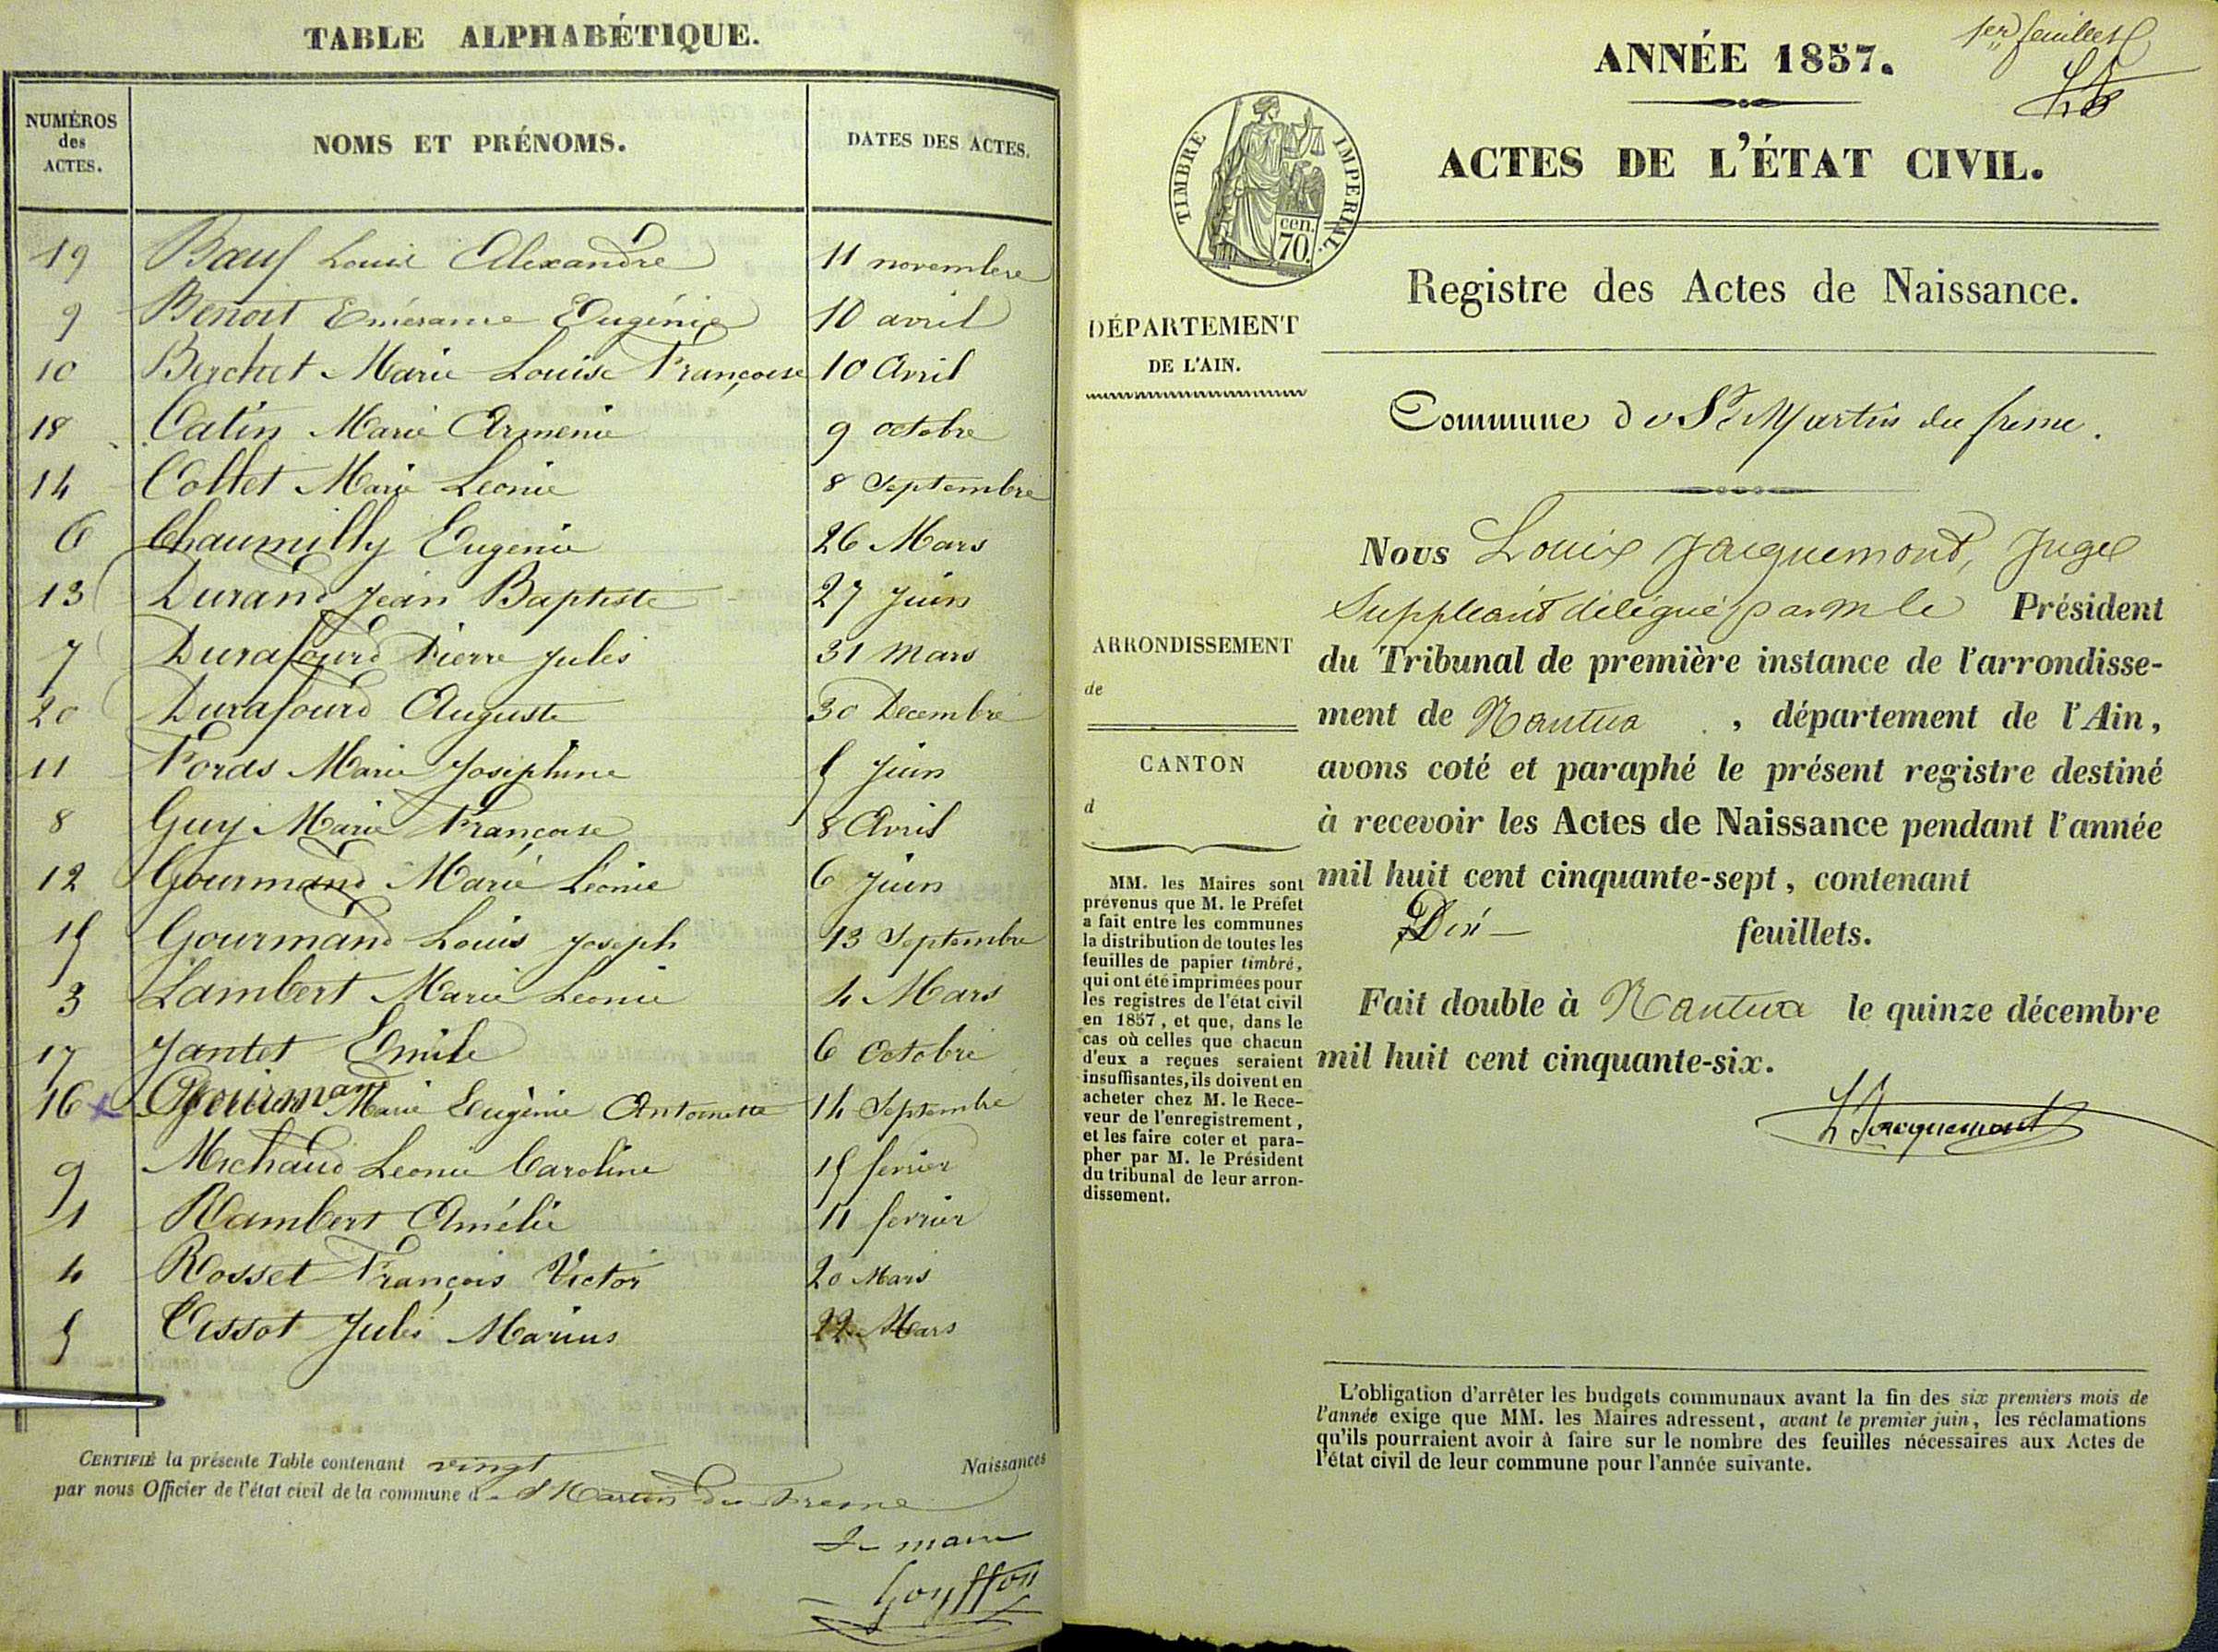 TABLE ALPHABÉTIQUE.
NUMÉROS des ACTES.
NOMS ET PRÉNOMS.
DATES DES ACTES.
19 Bœuf Louis Alexandre 11 novembre
9 Benoit Emérance Eugénie 10 avril
10 Berchet Marie Louise Françoise 10 Avril
18 Catin Marie Armenie 9 octobre
14 Collet Marie Leonie 8 Septembre
6 Chaumilly Eugenie 26 Mars
13 Durand Jean Baptiste 27 Juin
7 Durafourd Pierre Jules 31 Mars
20 Durafourd Auguste 30 Decembre
11 Foras Marie Josephine 5 Juin
8 Guy Marie Françoise 8 Avril
12 Gourmand Marie Léonie 6 Juin
15 Gourmand Louis Joseph 13 Septembre
3 Lambert Marie Leonie 4 Mars
17 Jantet Emile 6 Octobre
16 Gourmand Marie Eugénie Antoinette 14 Septembre
9 Michaud Leonie Caroline 15 fevrier
1 Rambert Amélie 11 fevrier
4 Rosset François Victor 20 Mars
5 Tissot Jules Marius 22 Mars
CERTIFIÉ la présente Table contenant vingt Naissances
par nous Officier de l'état civil de la commune d e St Martin du Fresne
Le maire
Goyffon
1er feuillet
ANNÉE 1857.
ACTES DE L'ÉTAT CIVIL.
TIMBRE IMPERIAL.
cen.
70.
Registre des Actes de Naissance.
DÉPARTEMENT
DE L'AIN.
Commune de St Martin du fresne.
Nous Louis Jacquemont, Juge
Suppléant délégué par M le Président
du Tribunal de première instance de l'arrondisse-
ment de Nantua , département de l'Ain,
avons coté et paraphé le présent registre destiné
à recevoir les Actes de Naissance pendant l'année
mil huit cent cinquante-sept, contenant
Dix feuillets.
Fait double à Nantua le quinze décembre
mil huit cent cinquante-six.
L Jacquemont
ARRONDISSEMENT
de
CANTON
d
MM. les Maires sont
prévenus que M. le Préfet
a fait entre les communes
la distribution de toutes les
feuilles de papier timbré,
qui ont été imprimées pour
les registres de l'état civil
en 1857, et que, dans le
cas où celles que chacun
d'eux a reçues seraient
insuffisantes, ils doivent en
acheter chez M. le Rece-
veur de l'enregistrement,
et les faire coter et para-
pher par M. le Président
du tribunal de leur arron-
dissement.
L'obligation d'arrêter les budgets communaux avant la fin des six premiers mois de
l'année exige que MM. les Maires adressent, avant le premier juin, les réclamations
qu'ils pourraient avoir à faire sur le nombre des feuilles nécessaires aux Actes de
l'état civil de leur commune pour l'année suivante.